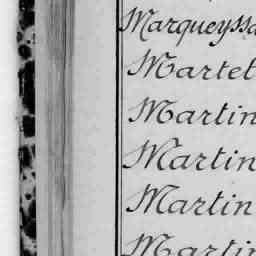 Marqueyssa
Martet
Martin
Martin
Martin
Martin